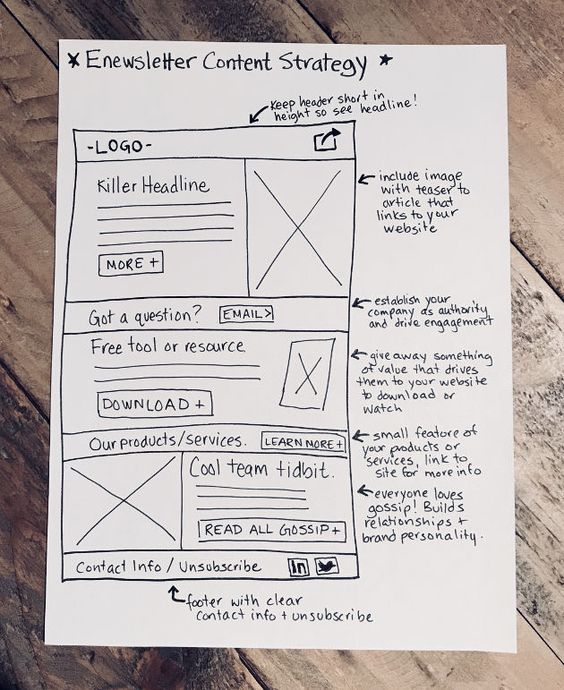 x Enewsletter Content Strategy *
keep header short in
height so see headline!
-LOGO-
Killer Headline
MORE +
include image
with teaser to
article that
links to your
website
Got a question? EMAIL>
establish your
company as authority
and drive engagement
Free tool or resource
DOWNLOAD +
give away something
of value that drives
them to your website
to download or
watch
Our products/services. LEARN MORE +
small feature of
your products or
services, link to
site for more info
Cool team tidbit.
READ ALL GOSSIP +
everyone loves
gossip! Builds
relationships +
brand personality.
Contact Info / Unsubscribe in
footer with clear
contact info + unsubscribe